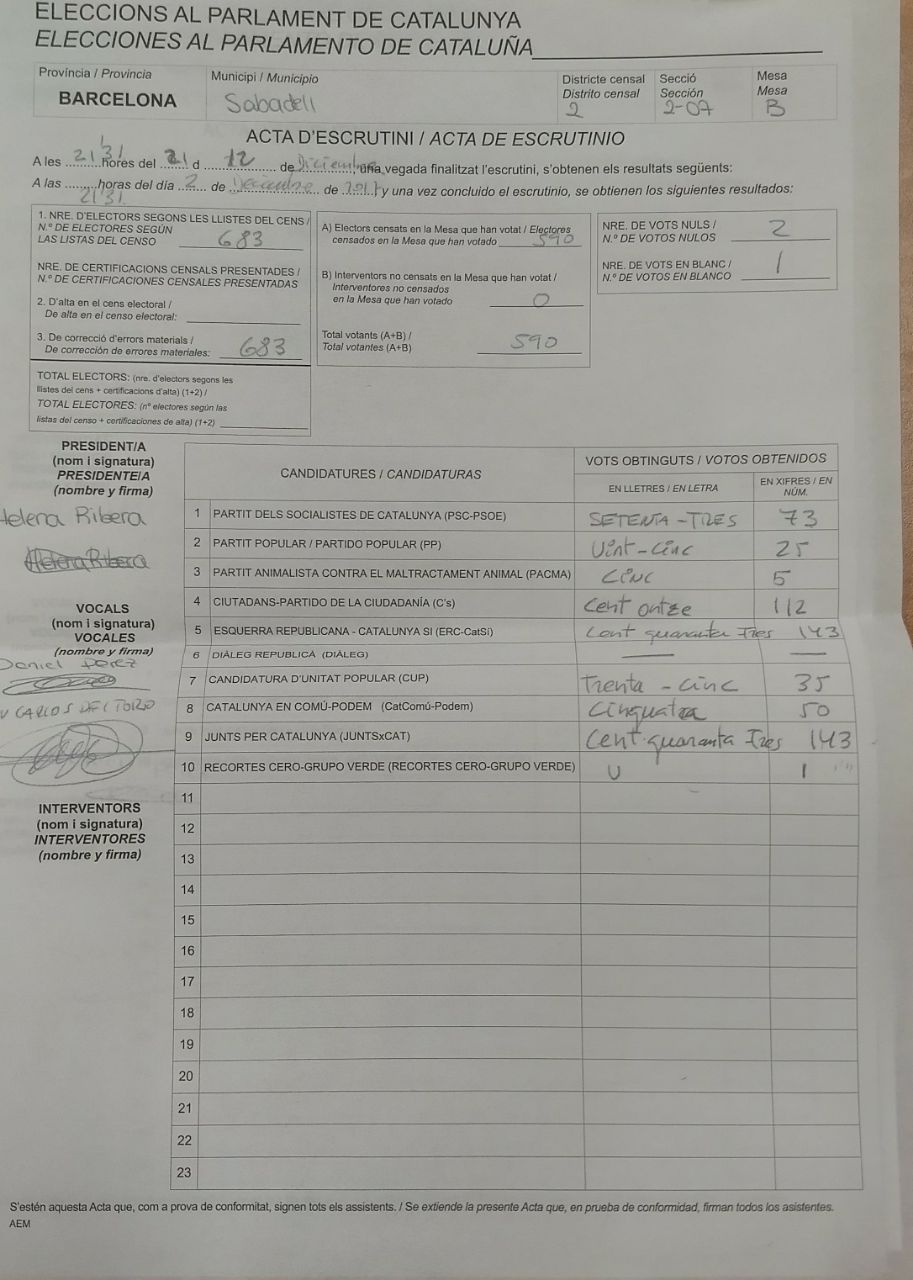 ELECCIONS AL PARLAMENT DE CATALUNYA
ELECCIONES AL PARLAMENTO DE CATALUÑA
Província / Provincia
BARCELONA
Municipi / Municipio
Sabadell
Districte censal
Distrito censal
2
Secció
Sección
2-07
Mesa
Mesa
B
ACTA D'ESCRUTINI / ACTA DE ESCRUTINIO
A les 21'31 hores del 21 d 12 de Diciembre, una vegada finalitzat l'escrutini, s'obtenen els resultats següents:
A las 21'31 horas del día 2 de de 201 y una vez concluido el escrutinio, se obtienen los siguientes resultados:
1. NRE. D'ELECTORS SEGONS LES LLISTES DEL CENS /
N.º DE ELECTORES SEGÚN
LAS LISTAS DEL CENSO 683
NRE. DE CERTIFICACIONS CENSALS PRESENTADES /
N.º DE CERTIFICACIONES CENSALES PRESENTADAS
2. D'alta en el cens electoral /
De alta en el censo electoral:
3. De correcció d'errors materials /
De corrección de errores materiales: 683
TOTAL ELECTORS: (nre. d'electors segons les
llistes del cens + certificacions d'alta) (1+2) /
TOTAL ELECTORES: (nº electores según las
listas del censo + certificaciones de alta) (1+2)
A) Electors censats en la Mesa que han votat / Electores
censados en la Mesa que han votado 590
B) Interventors no censats en la Mesa que han votat /
Interventores no censados
en la Mesa que han votado 0
Total votants (A+B) /
Total votantes (A+B) 590
NRE. DE VOTS NULS /
N.º DE VOTOS NULOS 2
NRE. DE VOTS EN BLANC /
N.º DE VOTOS EN BLANCO 1
PRESIDENT/A
(nom i signatura)
PRESIDENTE/A
(nombre y firma)
Helena Ribera
Helena Ribera
VOCALS
(nom i signatura)
VOCALES
(nombre y firma)
Daniel Perez
CARLOS DEL TORO
INTERVENTORS
(nom i signatura)
INTERVENTORES
(nombre y firma)
CANDIDATURES / CANDIDATURAS
VOTS OBTINGUTS / VOTOS OBTENIDOS
EN LLETRES / EN LETRA
EN XIFRES / EN
NÚM.
1 PARTIT DELS SOCIALISTES DE CATALUNYA (PSC-PSOE) SETENTA-TRES 73
2 PARTIT POPULAR / PARTIDO POPULAR (PP) Vint-cinc 25
3 PARTIT ANIMALISTA CONTRA EL MALTRACTAMENT ANIMAL (PACMA) CINC 5
4 CIUTADANS-PARTIDO DE LA CIUDADANÍA (C's) Cent ontze 112
5 ESQUERRA REPUBLICANA - CATALUNYA SI (ERC-CatSí) Cent quaranta Tres 143
6 DIÀLEG REPUBLICÀ (DIÀLEG) — —
7 CANDIDATURA D'UNITAT POPULAR (CUP) Trenta-cinc 35
8 CATALUNYA EN COMÚ-PODEM (CatComú-Podem) 50
9 JUNTS PER CATALUNYA (JUNTSxCAT) Cent quaranta Tres 143
10 RECORTES CERO-GRUPO VERDE (RECORTES CERO-GRUPO VERDE) U 1
11
12
13
14
15
16
17
18
19
20
21
22
23
S'estén aquesta Acta que, com a prova de conformitat, signen tots els assistents. / Se extiende la presente Acta que, en prueba de conformidad, firman todos los asistentes.
AEM